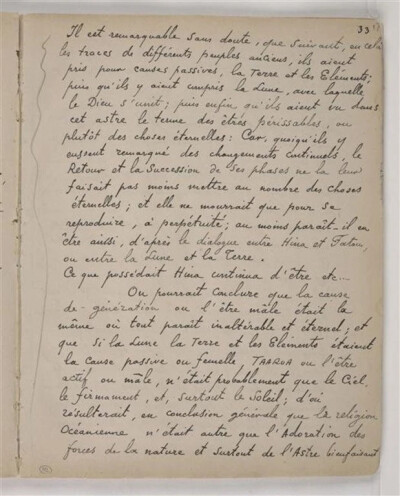 33
Il est remarquable sans doute, que suivant, en cela
les traces de différents peuples anciens, ils aient
pris pour causes passives, la Terre et les Eléments;
puis qu'ils y aient compris la Lune, avec laquelle
le Dieu s'unit; puis enfin qu'ils aient vu dans
cet astre le terme des êtres périssables, ou
plutôt des choses éternelles: Car, quoiqu'ils y
eussent remarqué des changements continuels, le
Retour et la Succession de ses phases ne la leur
faisait pas moins mettre au nombre des choses
éternelles; et elle ne mourrait que pour se
reproduire, à perpétuité; au moins paraît-il en
être ainsi, d'après le dialogue entre Hina et Fatou,
ou entre la Lune et la Terre.
Ce que possédait Hina continua d'être etc...
On pourrait conclure que la cause
de-génération ou l'être mâle était la
même où tout paraît inaltérable et éternel; et
que si la Lune la Terre et les Eléments étaient
la cause passive ou femelle, TAAROA ou l'être
actif ou mâle, n'était probablement que le Ciel,
le firmament, et, surtout le Soleil; d'où
résulterait, en conclusion générale que la religion
Océanienne n'était autre que l'Adoration des
forces de la nature et surtout de l'Astre bienfaisant